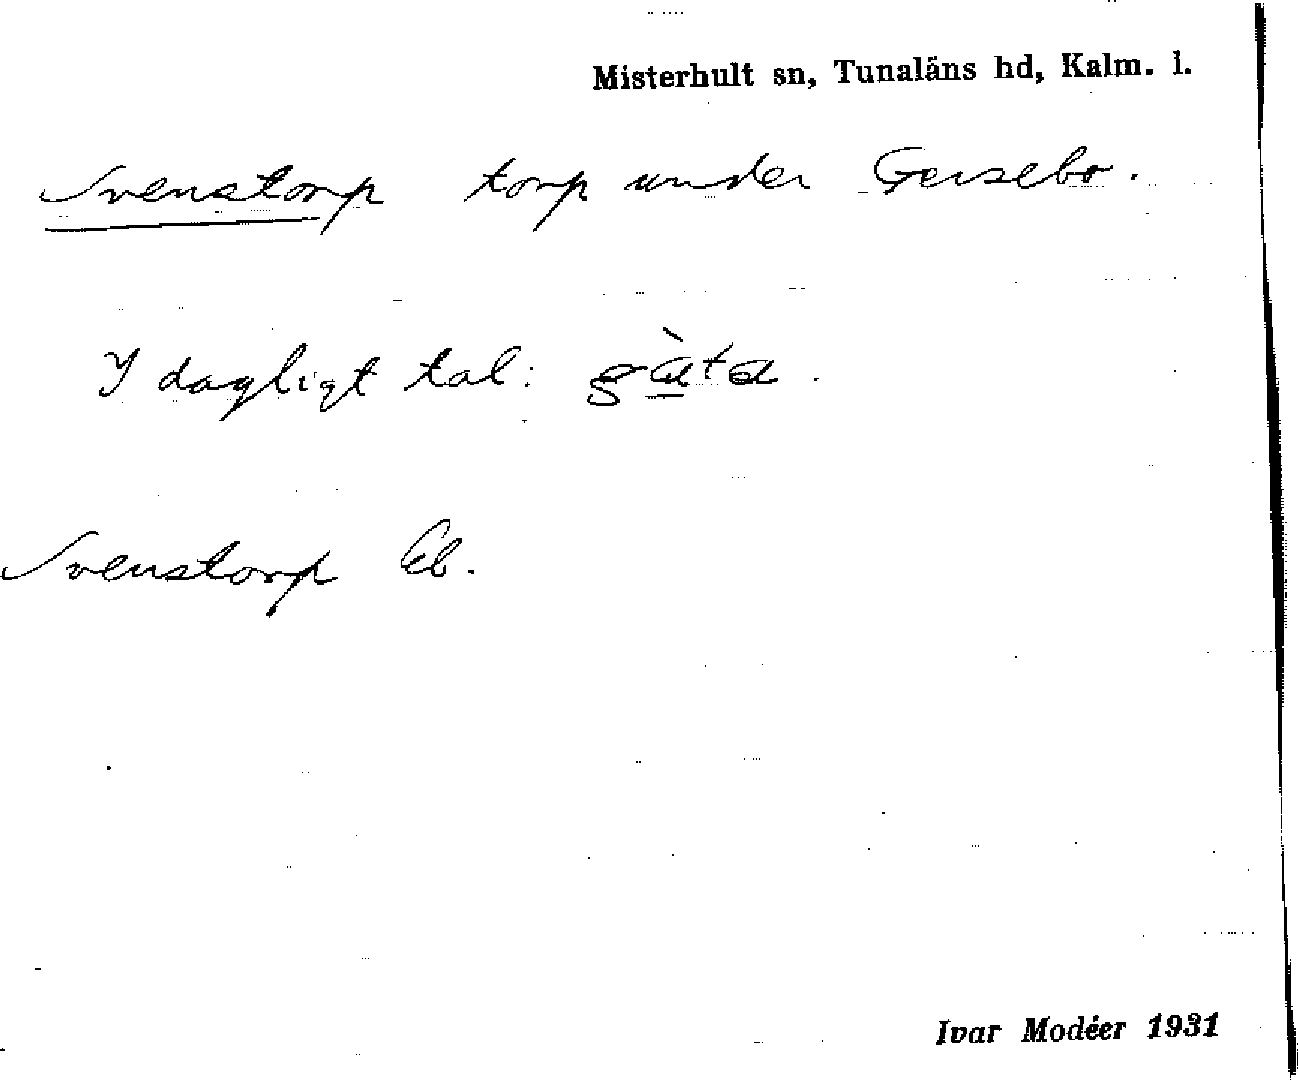 Misterhult sn, Tunaläns hd, Kalm. l.
Svenstorp torp under Gersebo.
I dagligt tal: gàta.
Svenstorp Eb.
Ivar Modéer 1931